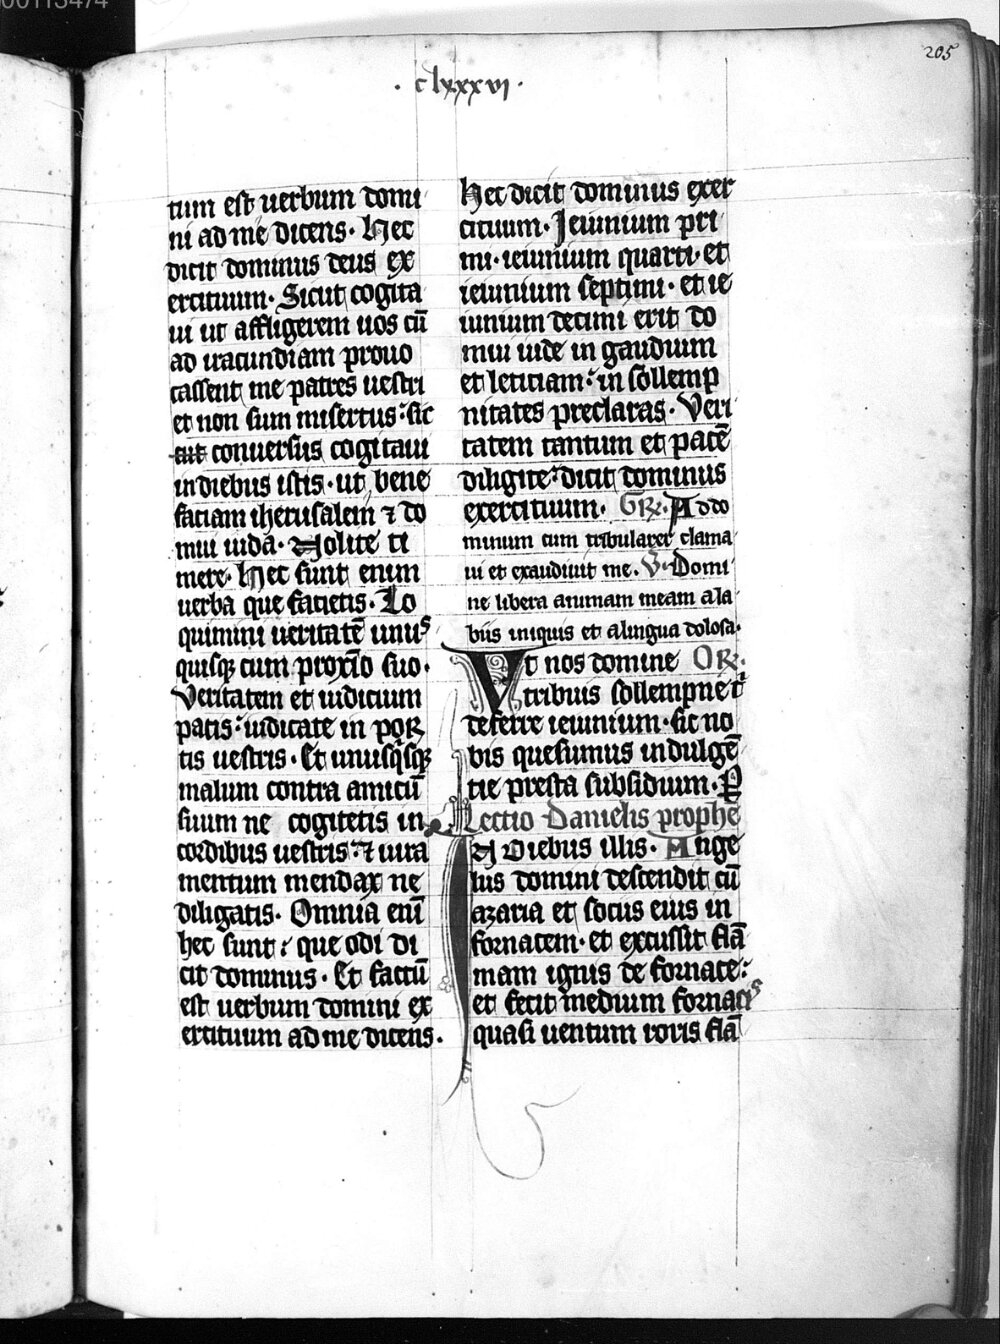 00113474
205
· clxxxvi ·
tum est uerbum domi
ni ad me dicens · Hec
dicit dominus deus ex
ercituum · Sicut cogita
ui ut affligerem uos cū
ad iracundiam prouo
cassent me patres uestri
et non sum misertus : sic
conuersus cogitaui
in diebus istis · ut bene
faciam iherusalem ⁊ do
mui iuda · Nolite ti
mere · Hec sunt enim
uerba que facietis · Lo
quimini ueritatē unus
quisqꝫ cum proxīo suo ·
Veritatem et iudicium
pacis : iudicate in por
tis uestris · Et unusqsqꝫ
malum contra amicū
suum ne cogitetis in
cordibus uestris : ⁊ iura
mentum mendax ne
diligatis · Omnia enī
hec sunt : que odi di
cit dominus · Et factū
est uerbum domini ex
ercituum ad me dicens ·
Hec dicit dominus exer
cituum · Ieiunium pri
mi · ieiunium quarti · et
ieiunium septimi · et ie
iunium decimi erit do
mui iude in gaudium
et leticiam : in sollemp
nitates preclaras · Veri
tatem tantum et pacē
diligite : dicit dominus
exercituum · GR · Ad do
minum cum tribularer clama
ui et exaudiuit me · V · Domi
ne libera animam meam a la
biis iniquis et a lingua dolosa ·
Vt nos domine OR ·
tribuis sollempne t
deferre ieiunium · sic no
bis quesumus indulgē
tie presta subsidium · P
Lectio Danielis prophe
In diebus illis · Ange
lus domini descendit cū
azaria et socus eius in
fornacem · et excussit flā
mam ignis de fornace :
et fecit medium fornacis
quasi uentum roris flā